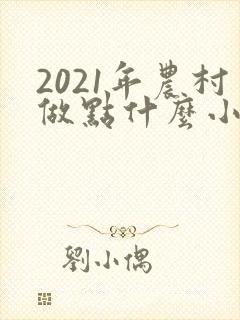 2021年農村
做點什麼小
劉小偶